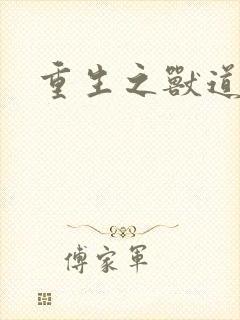 重生之獸道
傅家軍